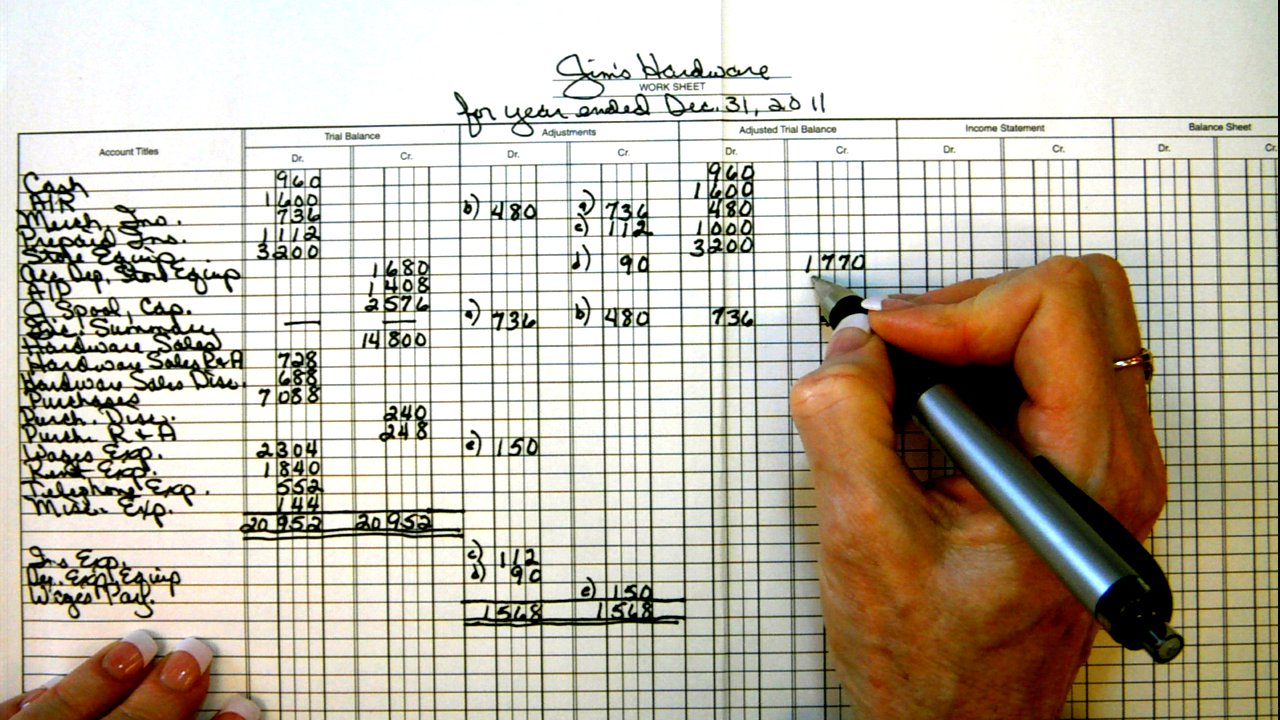 Jim's Hardware
WORK SHEET
for year ended Dec. 31, 2011
Account Titles Trial Balance Adjustments Adjusted Trial Balance Income Statement Balance Sheet
Dr. Cr. Dr. Cr. Dr. Cr. Dr. Cr. Dr. Cr.
Cash 960 960
A/R 1600 1600
Merch. Inv. 736 b) 480 a) 736 480
Prepaid Ins. 1112 c) 112 1000
Store Equip. 3200 3200
Acc. Dep. Store Equip 1680 d) 90 1770
A/P 1408
Cap. 2576
Summary — — a) 736 b) 480 736
Hardware Sales 14800
Hardware Sales R&A 728
Hardware Sales Disc. 688
Purchases 7088
Purch. Disc. 240
Purch. R & A 248
Wages Exp. 2304 e) 150
Rent Exp. 1840
Telephone Exp. 552
Misc. Exp. 144
20952 20952
Ins Exp. c) 112
Dep. Exp. Equip d) 90
Wages Pay. e) 150
1568 1568